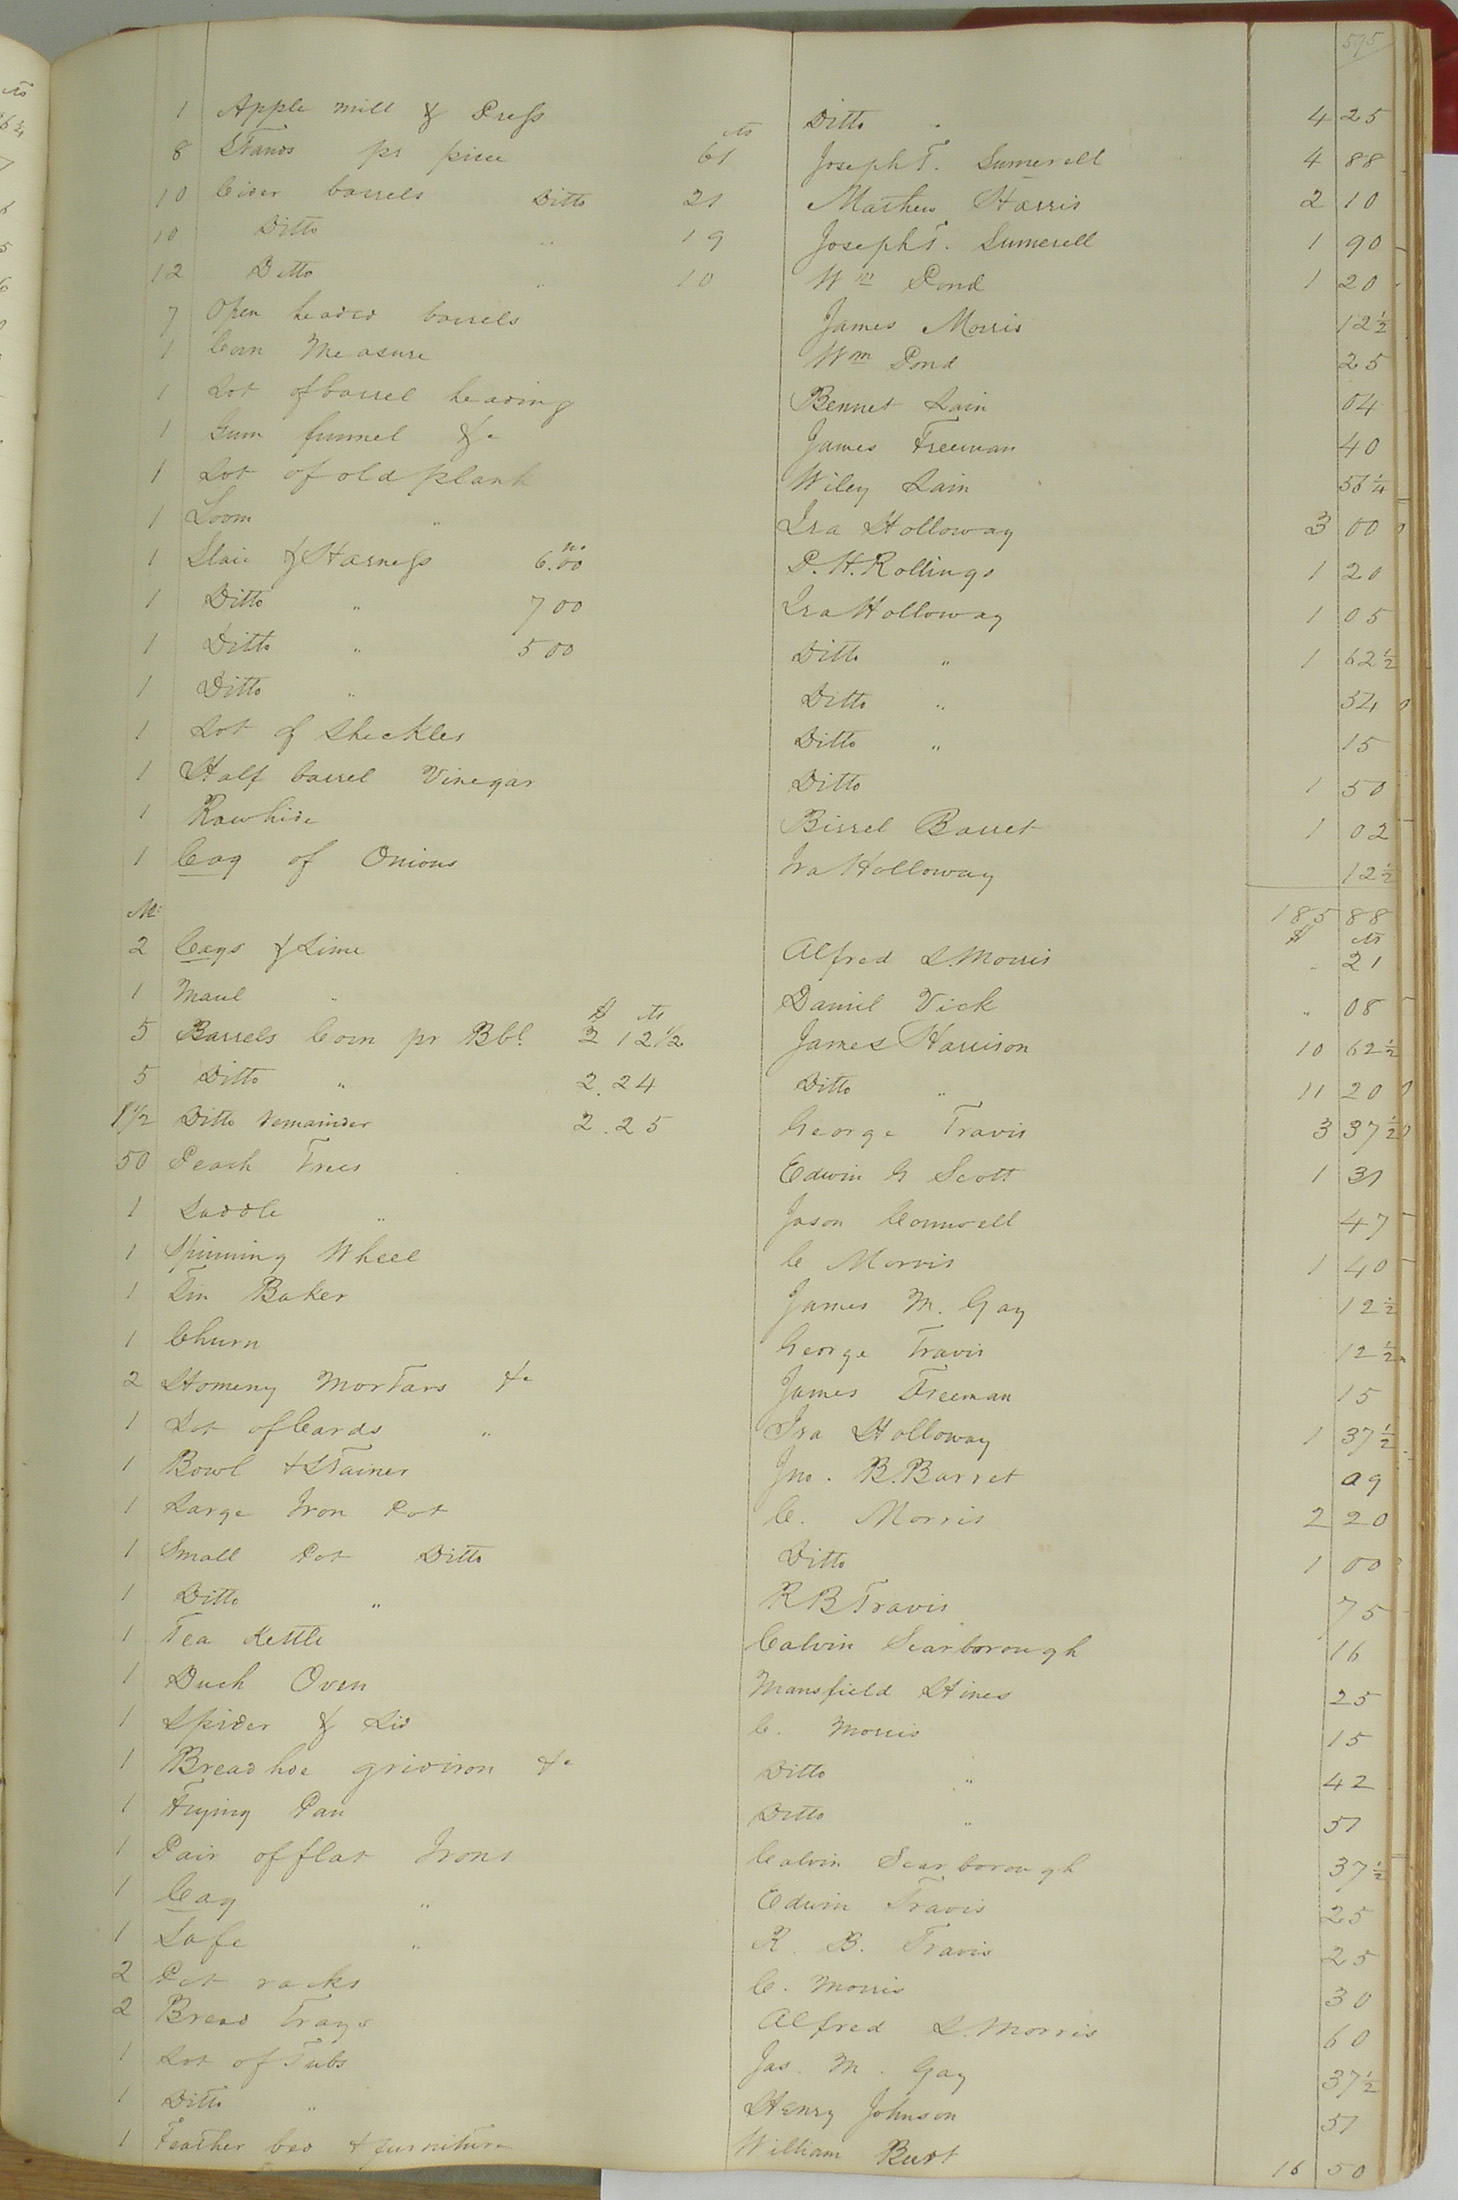 595
1 Apple mill & Press Ditto " 4 25
8 Stands pr piece cts 61 Joseph T. Sumerell 4 88
10 Cider barrels Ditto 21 Mathew Harris 2 10
10 Ditto " 19 Joseph T. Sumerell 1 90
12 Ditto " 10 Wm Pond 1 20
7 Open headed barrels James Morris 12½
1 Corn Measure Wm Pond 25
1 Lot of barrel heading Bennet Lain 04
1 Gum funnel &c James Freeman 40
1 Lot of old plank Wiley Lain 56¼
1 Loom " Ira Holloway 3 00
1 Slaie & Harness no 6.00 P. H. Rollings 1 20
1 Ditto " 7 00 Ira Holloway 1 05
1 Ditto " 5 00 Ditto " 1 62½
1 Ditto " Ditto " 54
1 Lot of Sheckles Ditto " 15
1 Half barrel Vinegar Ditto 1 50
1 Rawhide Birrel Barret 1 02
1 Cag of Onions Ira Holloway 12½
185 88
No $ cts
2 Cags & Lime Alfred L. Morris " 21
1 Maul " Daniel Vick " 08
$ cts
5 Barrels Corn pr Bbl. 2 12½ James Harrison 10 62½
5 Ditto " 2.24 Ditto " 11 20
1½ Ditto remainder 2.25 George Travis 3 37½
50 Peach Trees Edwin G Scott 1 31
1 Saddle " Jason Cornwell 47
1 Spinning Wheel C Morris 1 40
1 Tin Baker James M. Gay 12½
1 Churn George Travis 12½
2 Homeny Mortars &c James Freeman 15
1 Lot of Cards " Ira Holloway 1 37½
1 Bowl & Strainer Jno. B. Barret 09
1 Large Iron Pot C. Morris 2 20
1 Small Pot Ditto Ditto 1 00
1 Ditto " R B Travis 75
1 Tea Kettle Calvin Scarborough 16
1 Duch Oven Mansfield Hines 25
1 Spider & Lid C. Morris 15
1 Bread hoe gridiron &c Ditto " 42
1 Frying Pan Ditto " 51
1 Pair of flat Irons Calvin Scarborough 37½
1 Cag " Edwin Travis 25
1 Safe " R. B. Travis 25
2 Pot racks C. Morris 30
2 Bread Trays Alfred L. Morris 60
1 Lot of Tubs Jas. M. Gay 37½
1 Ditto " Henry Johnson 51
1 Feather bed & furniture William Burt 16 50